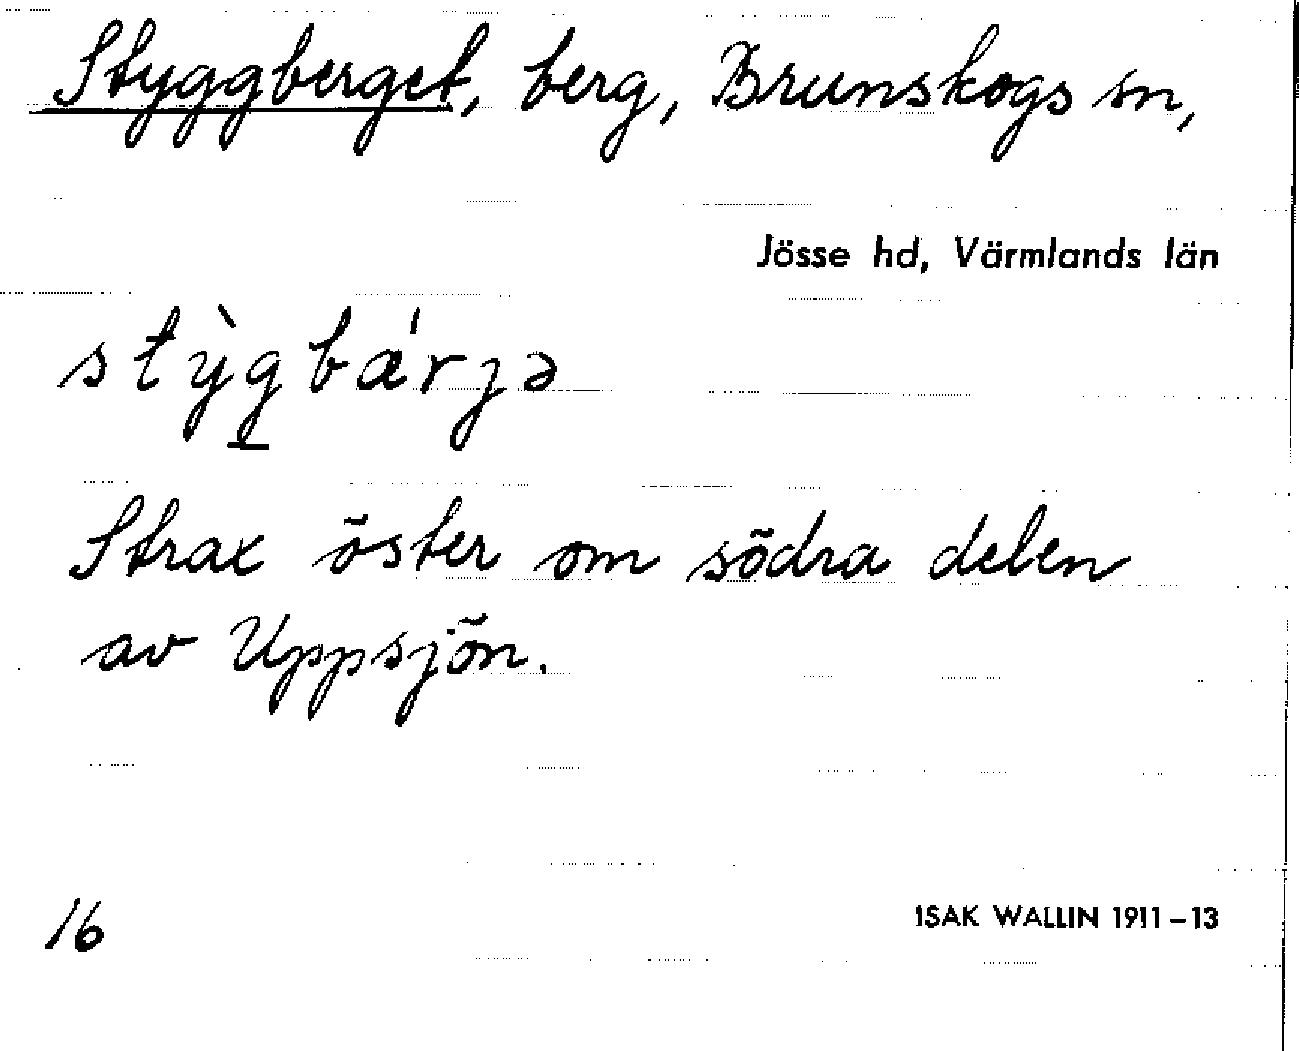 Styggberget, berg, Brunskogs sn,
Jösse hd, Värmlands län
stỳg̲bǽrjə
Strax öster om södra delen
av Uppsjön.
16
ISAK WALLIN 1911-13